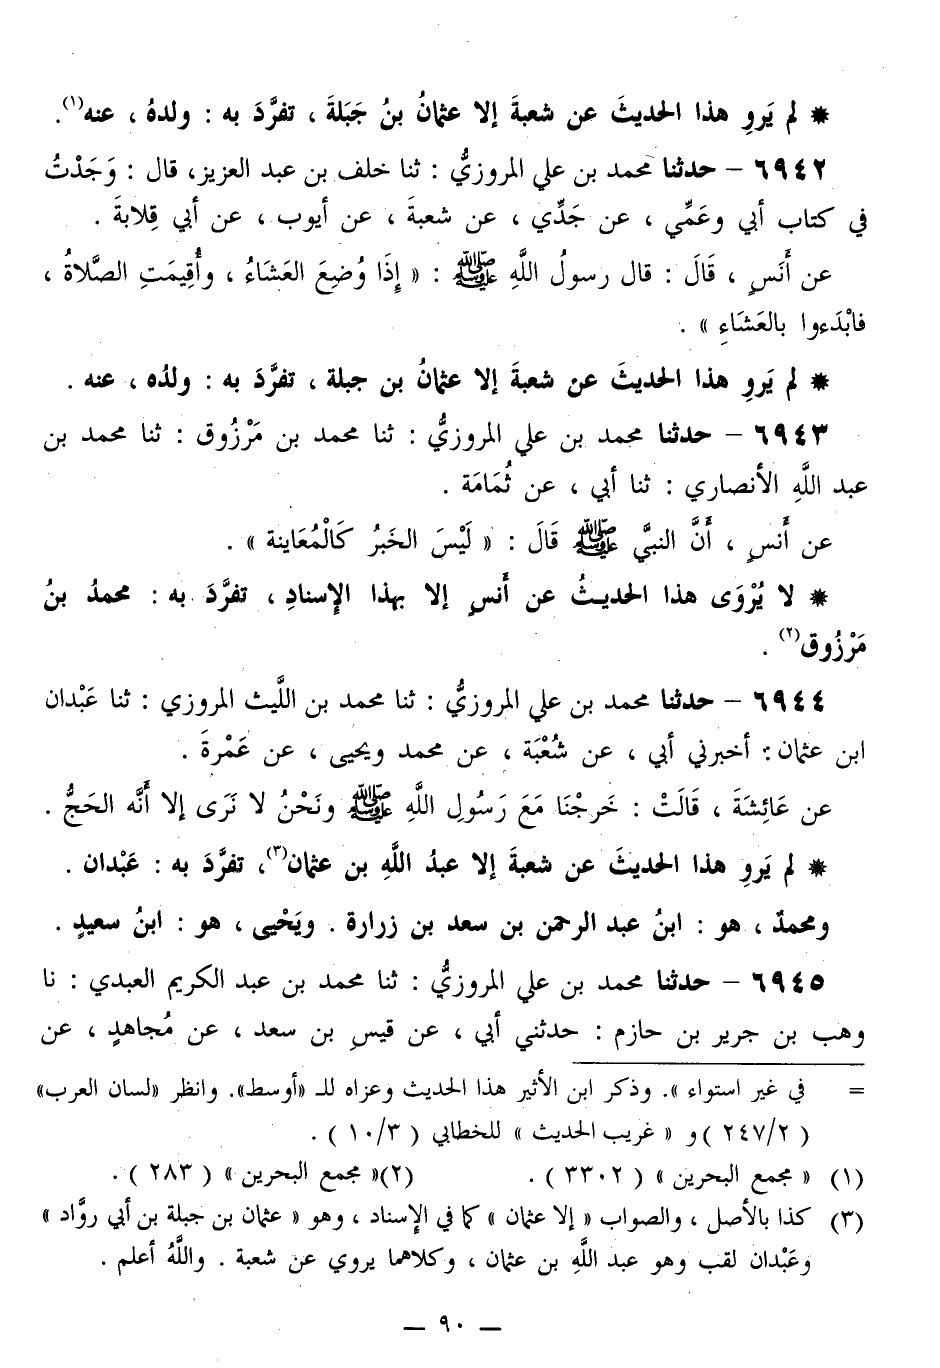 * لم يَروِ هذا الحديثَ عن شعبةَ إلا عثمانُ بنُ جَبَلةَ ، تفرَّدَ به : ولدهُ ، عنه(١).
٦٩٤٢ – حدثنا محمد بن علي المروزيُّ : ثنا خلف بن عبد العزيز، قال : وَجَدْتُ
في كتاب أبي وعَمِّي ، عن جَدِّي ، عن شعبةَ ، عن أيوب ، عن أبي قِلابةَ .
عن أَنَسٍ ، قَالَ : قال رسولُ اللَّهِ ﷺ : « إِذَا وُضِعَ العَشَاءُ ، وأُقِيمَتِ الصَّلاةُ ،
فابْدَءوا بالعَشَاءِ » .
* لم يَروِ هذا الحديثَ عن شعبةَ إلا عثمانُ بن جبلة ، تفرَّدَ به : ولدُه ، عنه .
٦٩٤٣ – حدثنا محمد بن علي المروزيُّ : ثنا محمد بن مَرْزُوق : ثنا محمد بن
عبد اللَّهِ الأنصاري : ثنا أبي ، عن ثُمَامَة .
عن أَنسٍ ، أَنَّ النبيَّ ﷺ قَالَ : « لَيْسَ الخَبرُ كَالْمُعَاينة » .
* لا يُرْوَى هذا الحديثُ عن أَنسٍ إلا بهذا الإسنادِ ، تفرَّدَ به : محمدُ بنُ
مَرْزُوق(٢) .
٦٩٤٤ – حدثنا محمد بن علي المروزيُّ : ثنا محمد بن اللَّيث المروزي : ثنا عَبْدان
ابن عثمان : أخبرني أبي ، عن شُعْبَة ، عن محمد ويحيى ، عن عَمْرةَ .
عن عَائِشةَ ، قَالَتْ : خَرجْنَا مَعَ رَسُولِ اللَّهِ ﷺ ونَحْنُ لا نَرَى إلا أَنَّه الحَجُّ .
* لم يَروِ هذا الحديثَ عن شعبةَ إلا عبدُ اللَّهِ بن عثمان(٣)، تفرَّدَ به : عَبْدان .
ومحمدٌ ، هو : ابنُ عبد الرحمن بن سعد بن زرارة . ويَحْيى ، هو : ابنُ سعيدٍ .
٦٩٤٥ – حدثنا محمد بن علي المروزيُّ : ثنا محمد بن عبد الكريم العبدي : نا
وهب بن جرير بن حازم : حدثني أبي ، عن قيسِ بن سعد ، عن مُجاهدٍ ، عن
= في غير استواء ». وذكر ابن الأثير هذا الحديث وعزاه للـ «أوسط». وانظر «لسان العرب»
( ٢٤٧/٢ ) و « غريب الحديث » للخطابي ( ١٠/٣ ) .
(١) « مجمع البحرين » ( ٣٣٠٢ ) . (٢)« مجمع البحرين » ( ٢٨٣ ) .
(٣) كذا بالأصل ، والصواب « إلا عثمان » كما في الإسناد ، وهو « عثمان بن جبلة بن أبي روَّاد »
وعَبْدان لقب وهو عبد اللَّهِ بن عثمان ، وكلاهما يروي عن شعبة . واللَّهُ أعلم .
— ٩٠ —